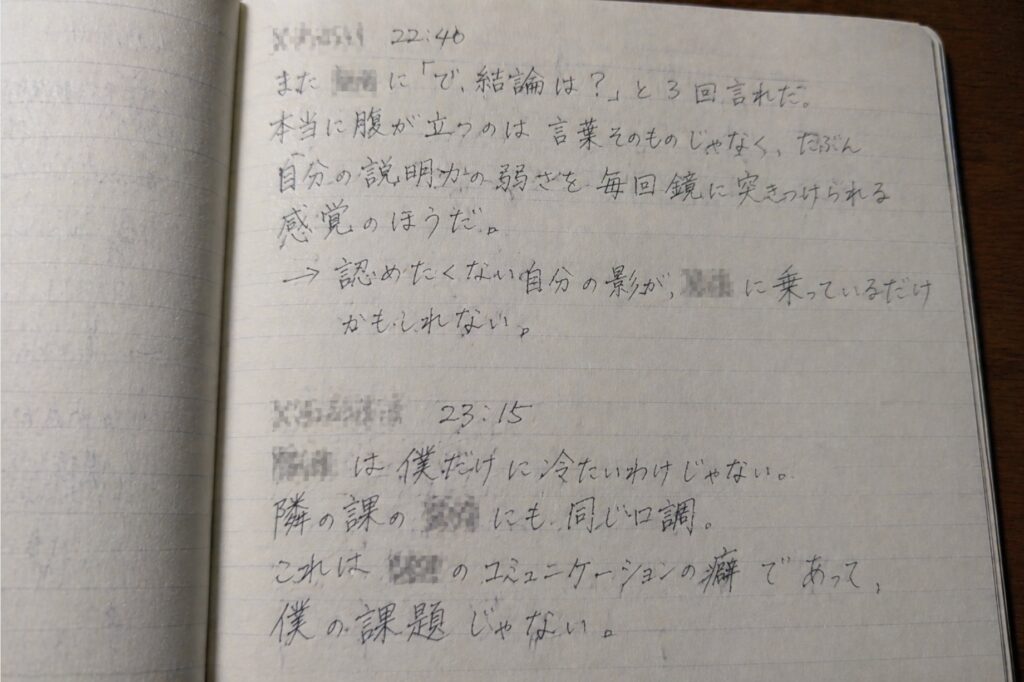 22:40
また に「で、結論は？」と3回言れた。
本当に腹が立つのは 言葉そのものじゃなく、たぶん
自分の説明力の弱さを 毎回鏡に突きつけられる
感覚のほうだ。
→ 認めたくない自分の影が、 に乗っているだけ
かもしれない。
23:15
は僕だけに冷たいわけじゃない。
隣の課の にも同じ口調。
これは のコミュニケーションの癖であって、
僕の課題じゃない。